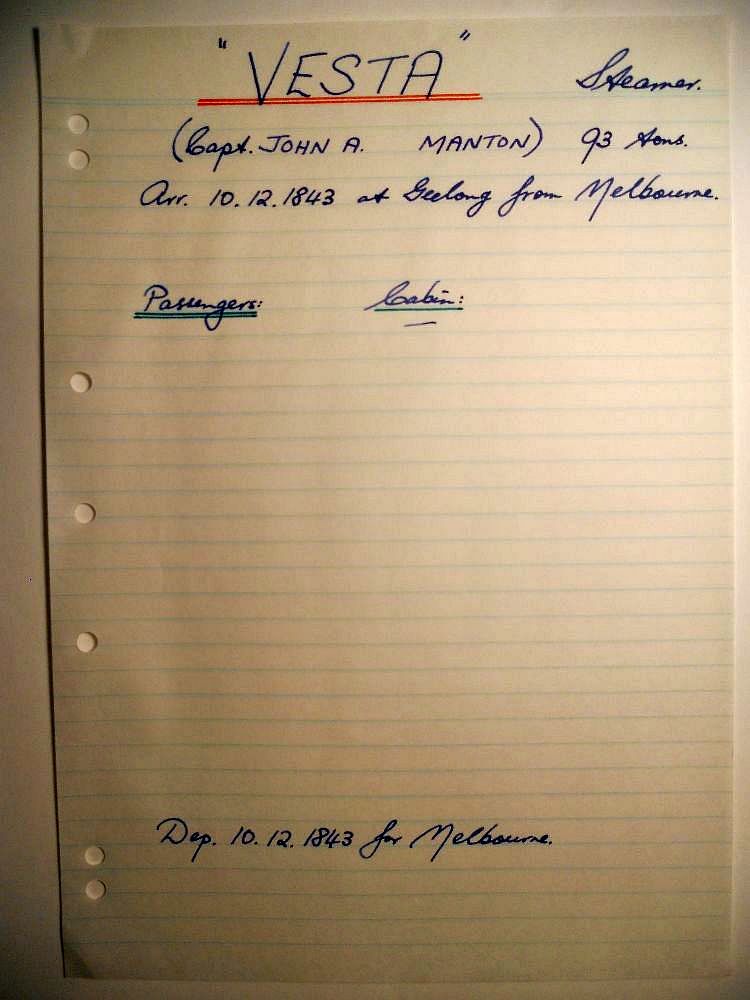 "VESTA" Steamer.
(Capt. JOHN A. MANTON) 93 tons.
Arr. 10.12.1843 at Geelong from Melbourne.
Passengers: Cabin:
—
Dep. 10.12.1843 for Melbourne.